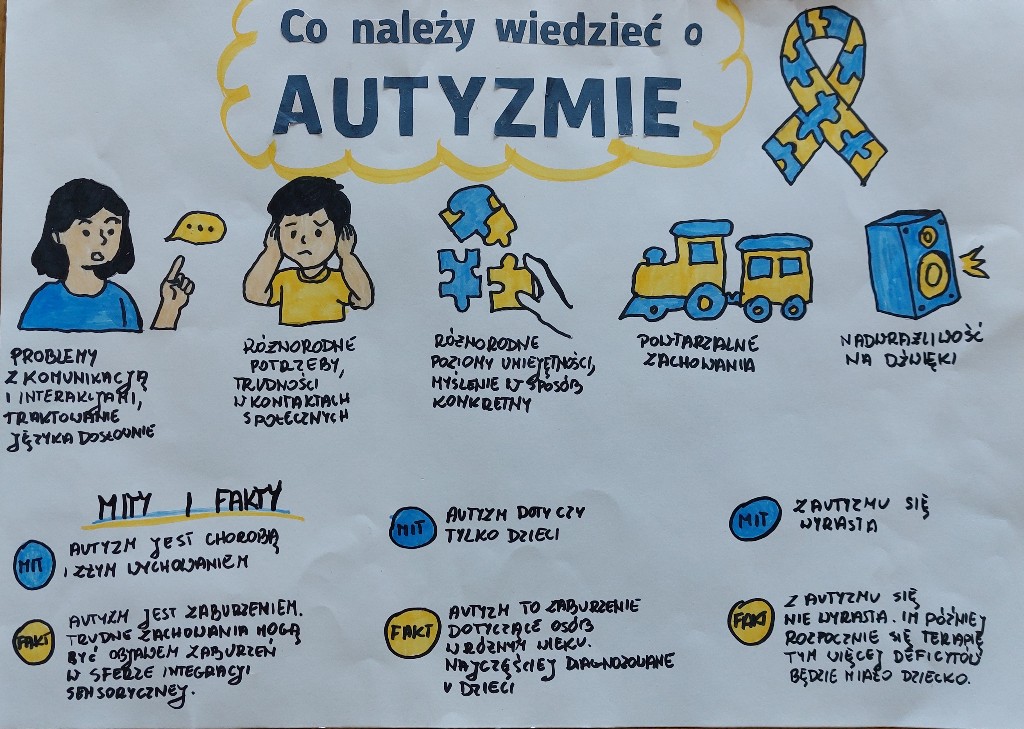 Co należy wiedzieć o
AUTYZMIE
PROBLEMY
Z KOMUNIKACJĄ
I INTERAKCJAMI,
TRAKTOWANIE
JĘZYKA DOSŁOWNIE
RÓŻNORODNE
POTRZEBY,
TRUDNOŚCI
W KONTAKTACH
SPOŁECZNYCH
RÓŻNORODNE
POZIOMY UMIEJĘTNOŚCI,
MYŚLENIE W SPOSÓB
KONKRETNY
POWTARZALNE
ZACHOWANIA
NADWRAŻLIWOŚĆ
NA DŹWIĘKI
MITY I FAKTY
MIT
AUTYZM JEST CHOROBĄ
I ZŁYM WYCHOWANIEM
MIT
AUTYZM DOTYCZY
TYLKO DZIECI
MIT
Z AUTYZMU SIĘ
WYRASTA
FAKT
AUTYZM JEST ZABURZENIEM.
TRUDNE ZACHOWANIA MOGĄ
BYĆ OBJAWEM ZABURZEŃ
W SFERZE INTEGRACJI
SENSORYCZNEJ.
FAKT
AUTYZM TO ZABURZENIE
DOTYCZĄCE OSÓB
W RÓŻNYM WIEKU.
NAJCZĘŚCIEJ DIAGNOZOWANE
U DZIECI
FAKT
Z AUTYZMU SIĘ
NIE WYRASTA. IM PÓŹNIEJ
ROZPOCZNIE SIĘ TERAPIĘ
TYM WIĘCEJ DEFICYTÓW
BĘDZIE MIAŁO DZIECKO.